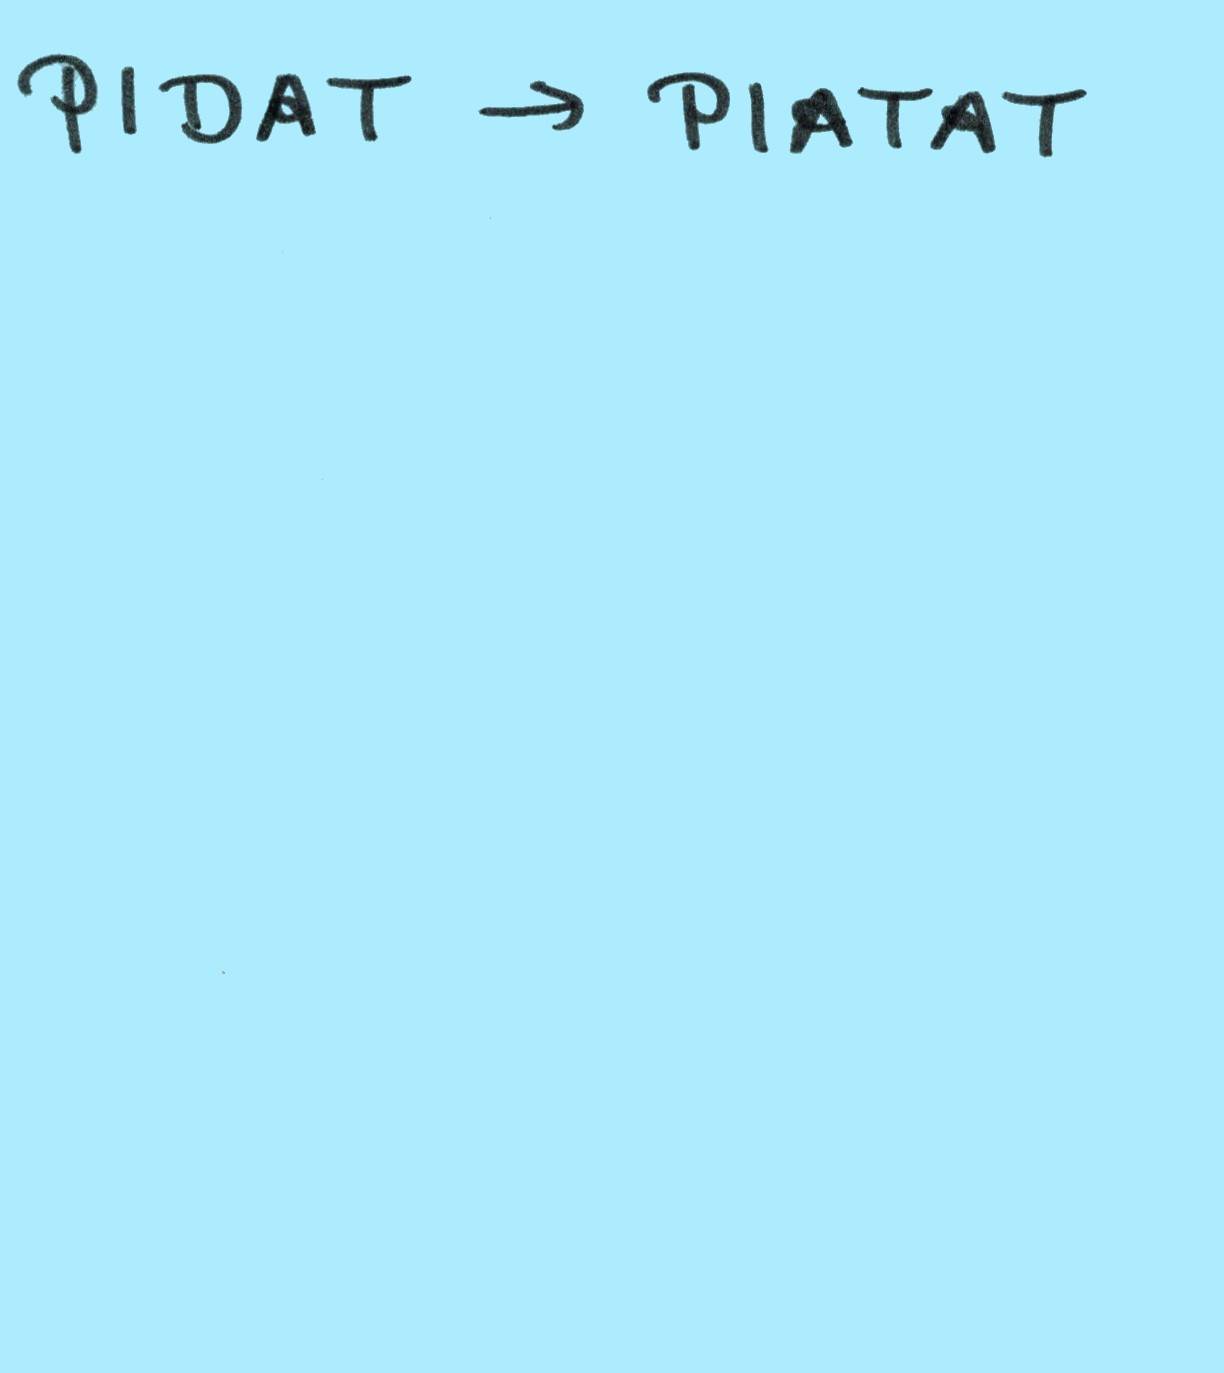 PIDAT → PIATAT